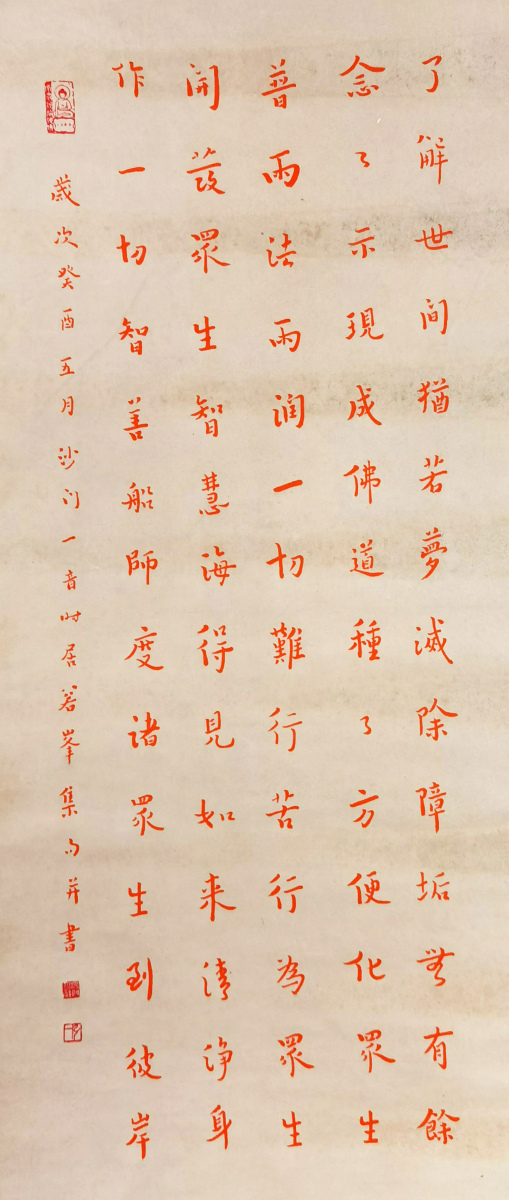 了解世间猶若夢滅除障垢無有餘
念々示現成佛道種々方便化眾生
普雨法雨润一切難行苦行為眾生
開發眾生智慧海得見如来清淨身
作一切智善船師度諸眾生到彼岸
歲次癸酉五月沙门一音时居峯集句并書